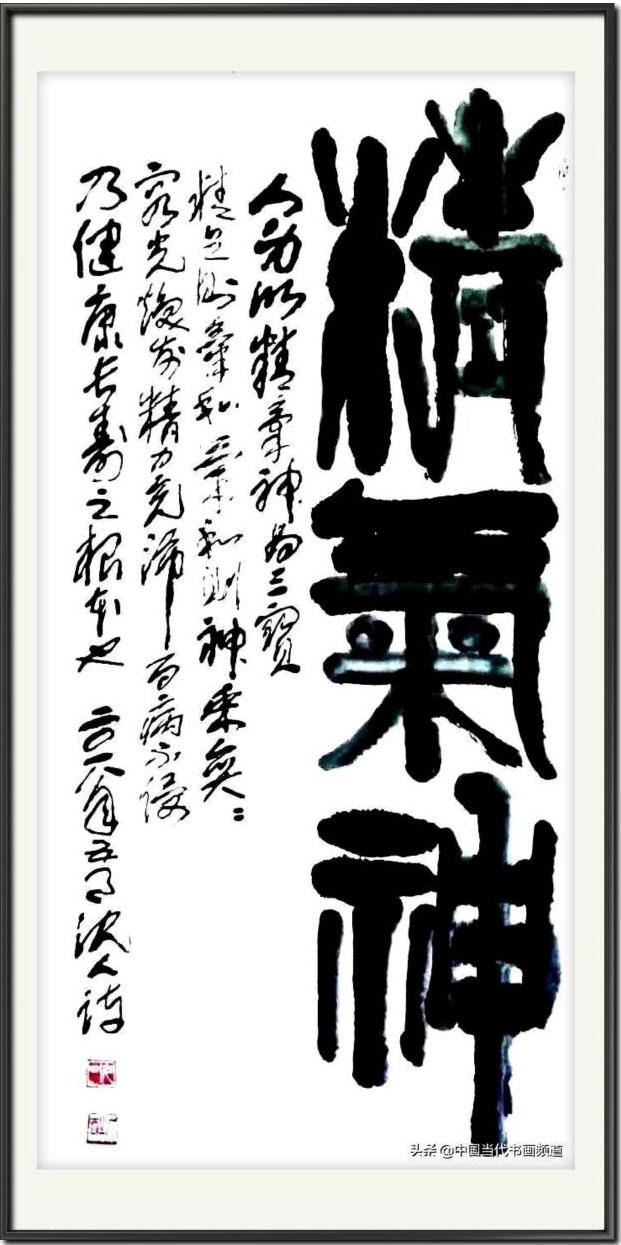 精氣神
人身以精氣神為三寶
精足則氣和氣和則神爽爽〻
容光煥发精力充沛百病不侵
乃健康长壽之根本也 二〇一八年五月沈人詩
头条 @中国当代书画频道